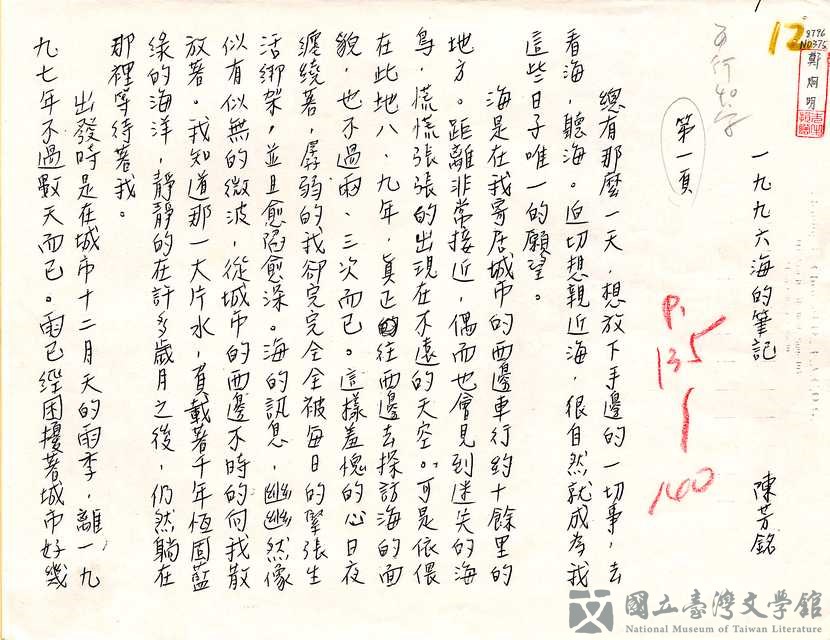 12
8796
N0375
鄭烱明
一九九六海的筆記
陳芳銘
第一頁
P.
135
140
總有那麼一天，想放下手邊的一切事，去
看海，聽海。迫切想親近海，很自然就成為我
這些日子唯一的願望。
海是在我寄居城市的西邊車行約十餘里的
地方。距離非常接近，偶而也會見到迷失的海
鳥，慌慌張張的出現在不遠的天空。可是依偎
在此地八、九年，真正往西邊去探訪海的面
貌，也不過兩、三次而已。這樣羞愧的心日夜
纏繞著，孱弱的我卻完完全全被每日的緊張生
活綁架，並且愈陷愈深。海的訊息，幽幽然像
似有似無的微波，從城市的西邊不時的向我散
放著。我知道那一大片水，負載著千年恆固藍
綠的海洋，靜靜的在許多歲月之後，仍然躺在
那裡等待著我。
出發時是在城市十二月天的雨季，離一九
九七年不過數天而已。雨已經困擾著城市好幾
國立臺灣文學館
National Museum of Taiwan Literature